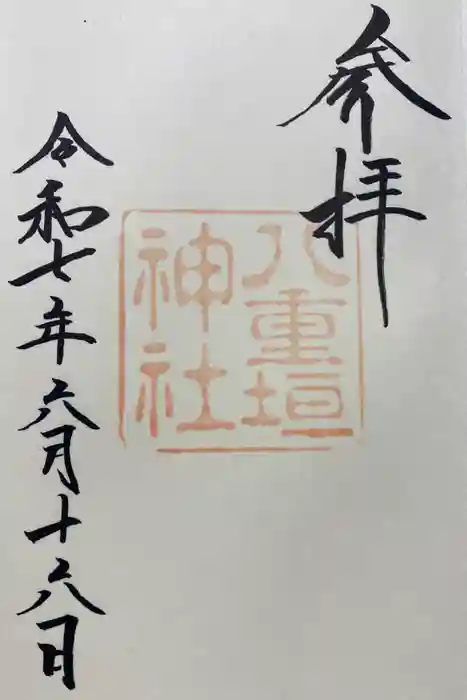 参拝
八重垣
神社
令和七年六月十六日